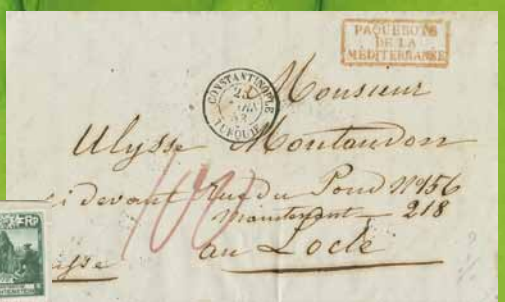 PAQUEBOTS
DE LA
MÉDITERRANÉE
CONSTANTINOPLE
23
TURQUIE
Monsieur
Ulysse Montandon
ci devant Rue du Pond Nº 156
maintenant 218
100
au Locle